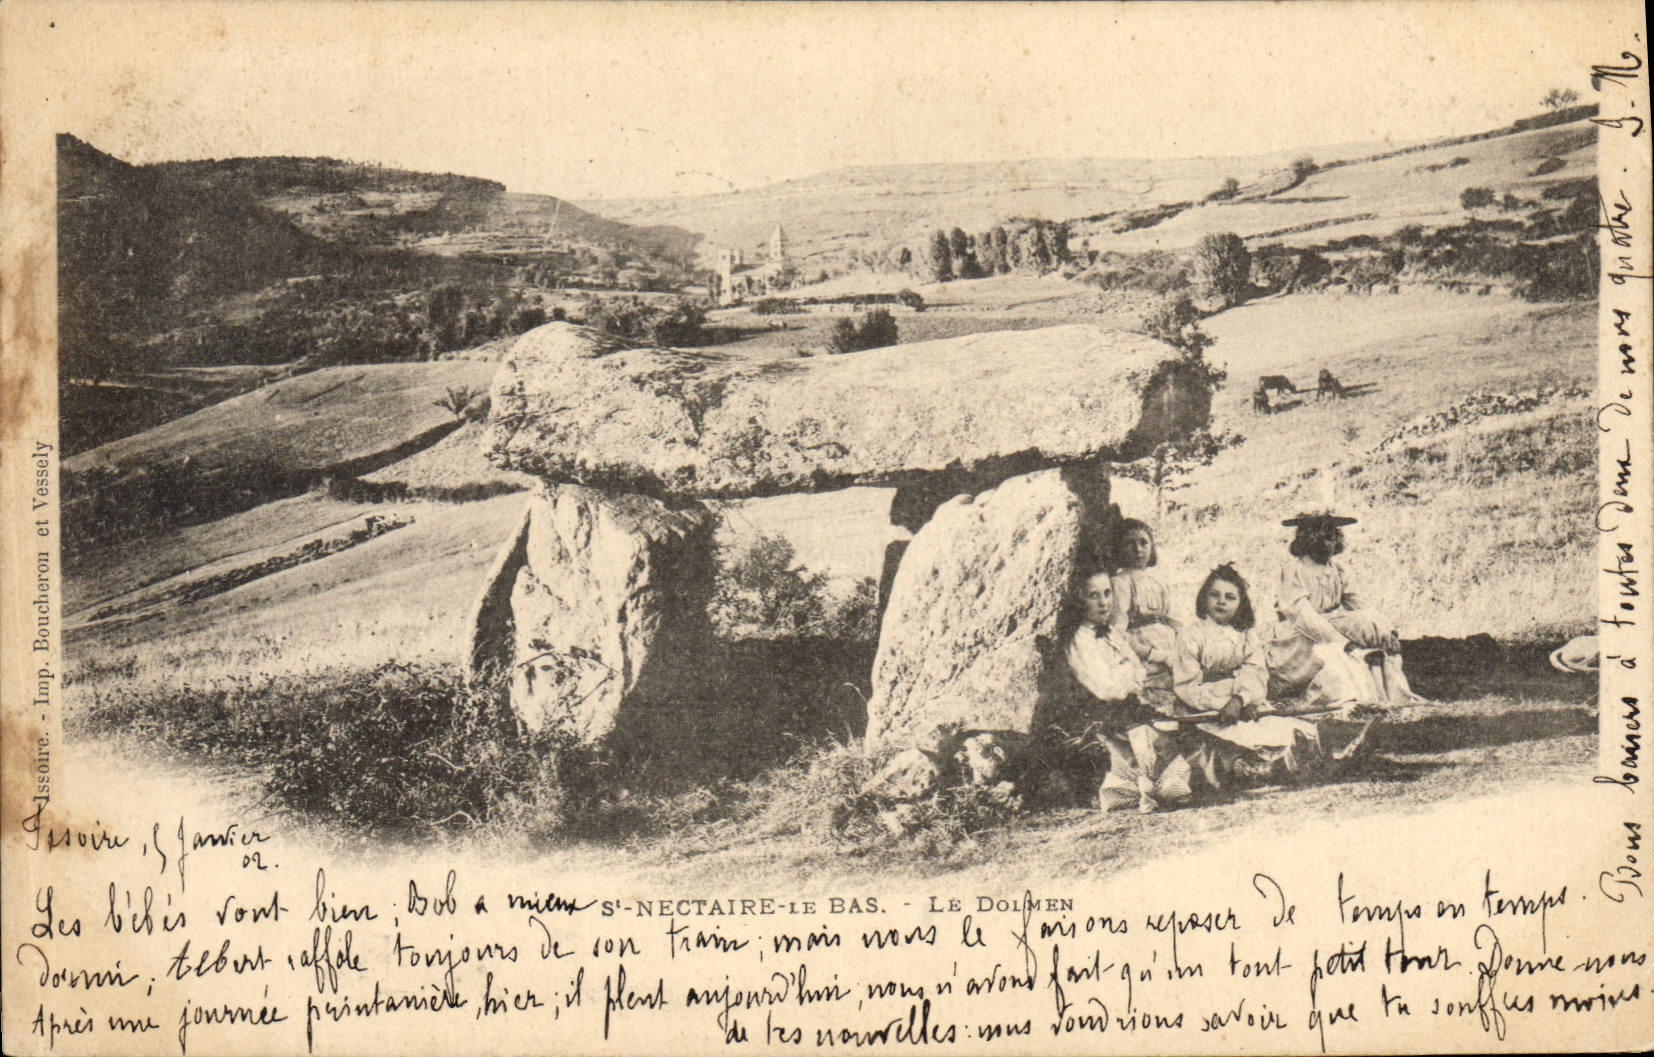 Issoire. - Imp. Boucheron et Vessely
Issoire, 5 Janvier
02.
St-NECTAIRE-LE BAS. - LE DOLMEN
Les bébés vont bien ; Bob a mieux
dormi ; Albert raffole toujours de son train ; mais nous le faisons reposer de temps en temps.
Après une journée printanière, hier ; il pleut aujourd'hui ; nous n'avons fait qu'un tout petit tour. Donne-nous
de tes nouvelles : nous voudrions savoir que tu souffres moins.
Bons baisers à toutes deux de nous quatre. J. N.